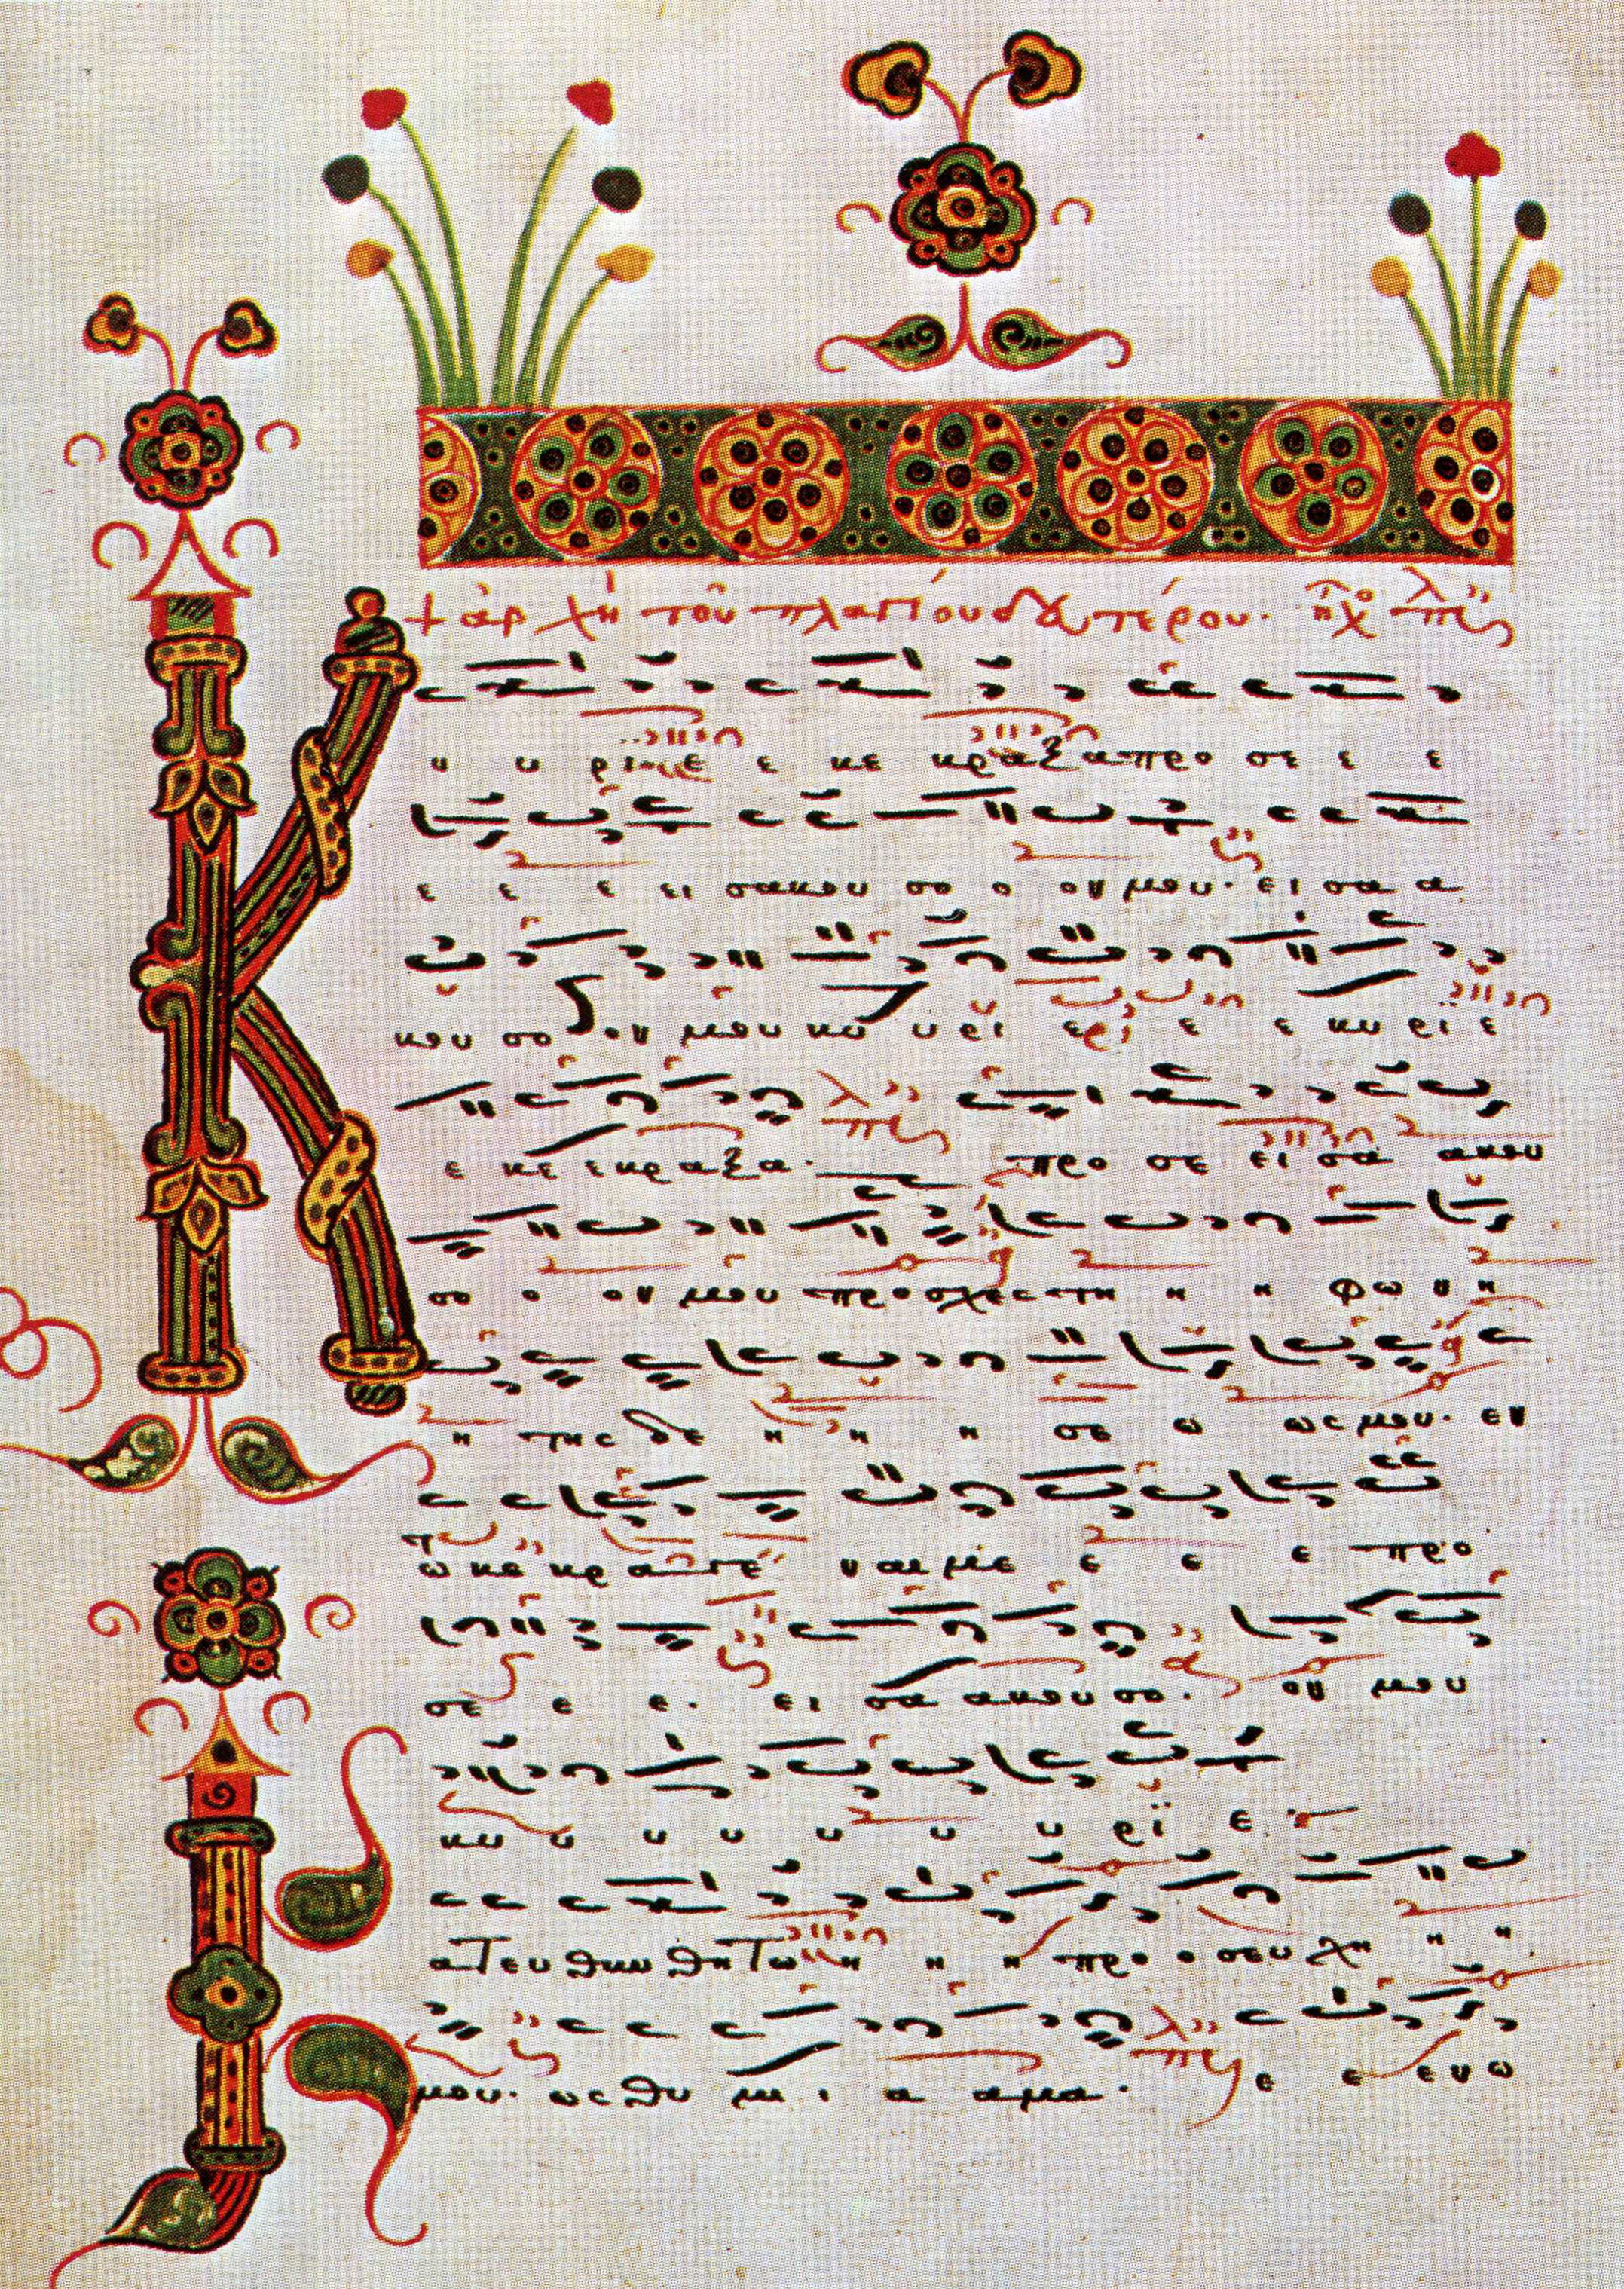 + ἀρχὴ τοῦ πλαγίου δευτέρου· ἦχος πλ
Κυ υ ρι ε ε κε κραξα προ σε ε ε
ε ε ε ει σακου σο ο ον μου· εισα α
κου σο ον μου κυ υ ρι ε ε ε κυ ρι ε
ε κε εκραξα· προ σε εισα ακου
σο ο ον μου προσχες τη η η φω νη
η της δε η η η σε ω ως μου· εν
τω κε κραγε ναι με ε ε ε προ
σε ε ε· ει σα ακουσο· ον μου
κυ υ υ υ υ υ υ ρι ε
Κατευθυνθητω η η η προ ο σευ χη η η
μου· ως θυ μι ι α αμα· ε ε ενω